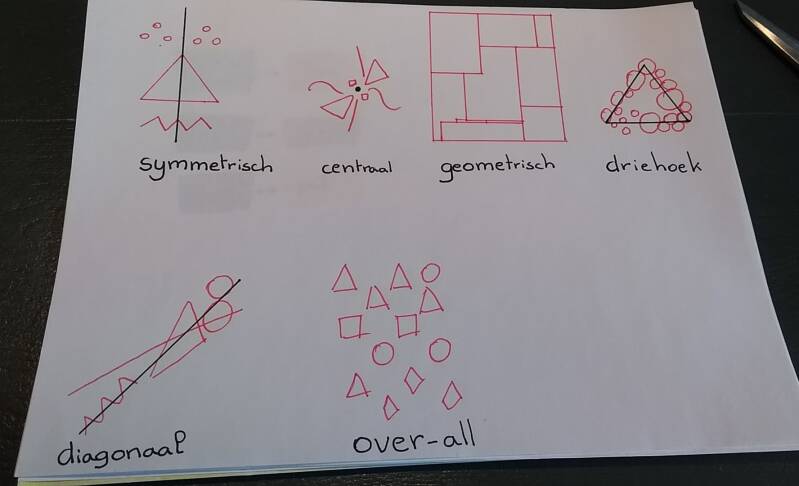 symmetrisch
centraal
geometrisch
driehoek
diagonaal
over-all